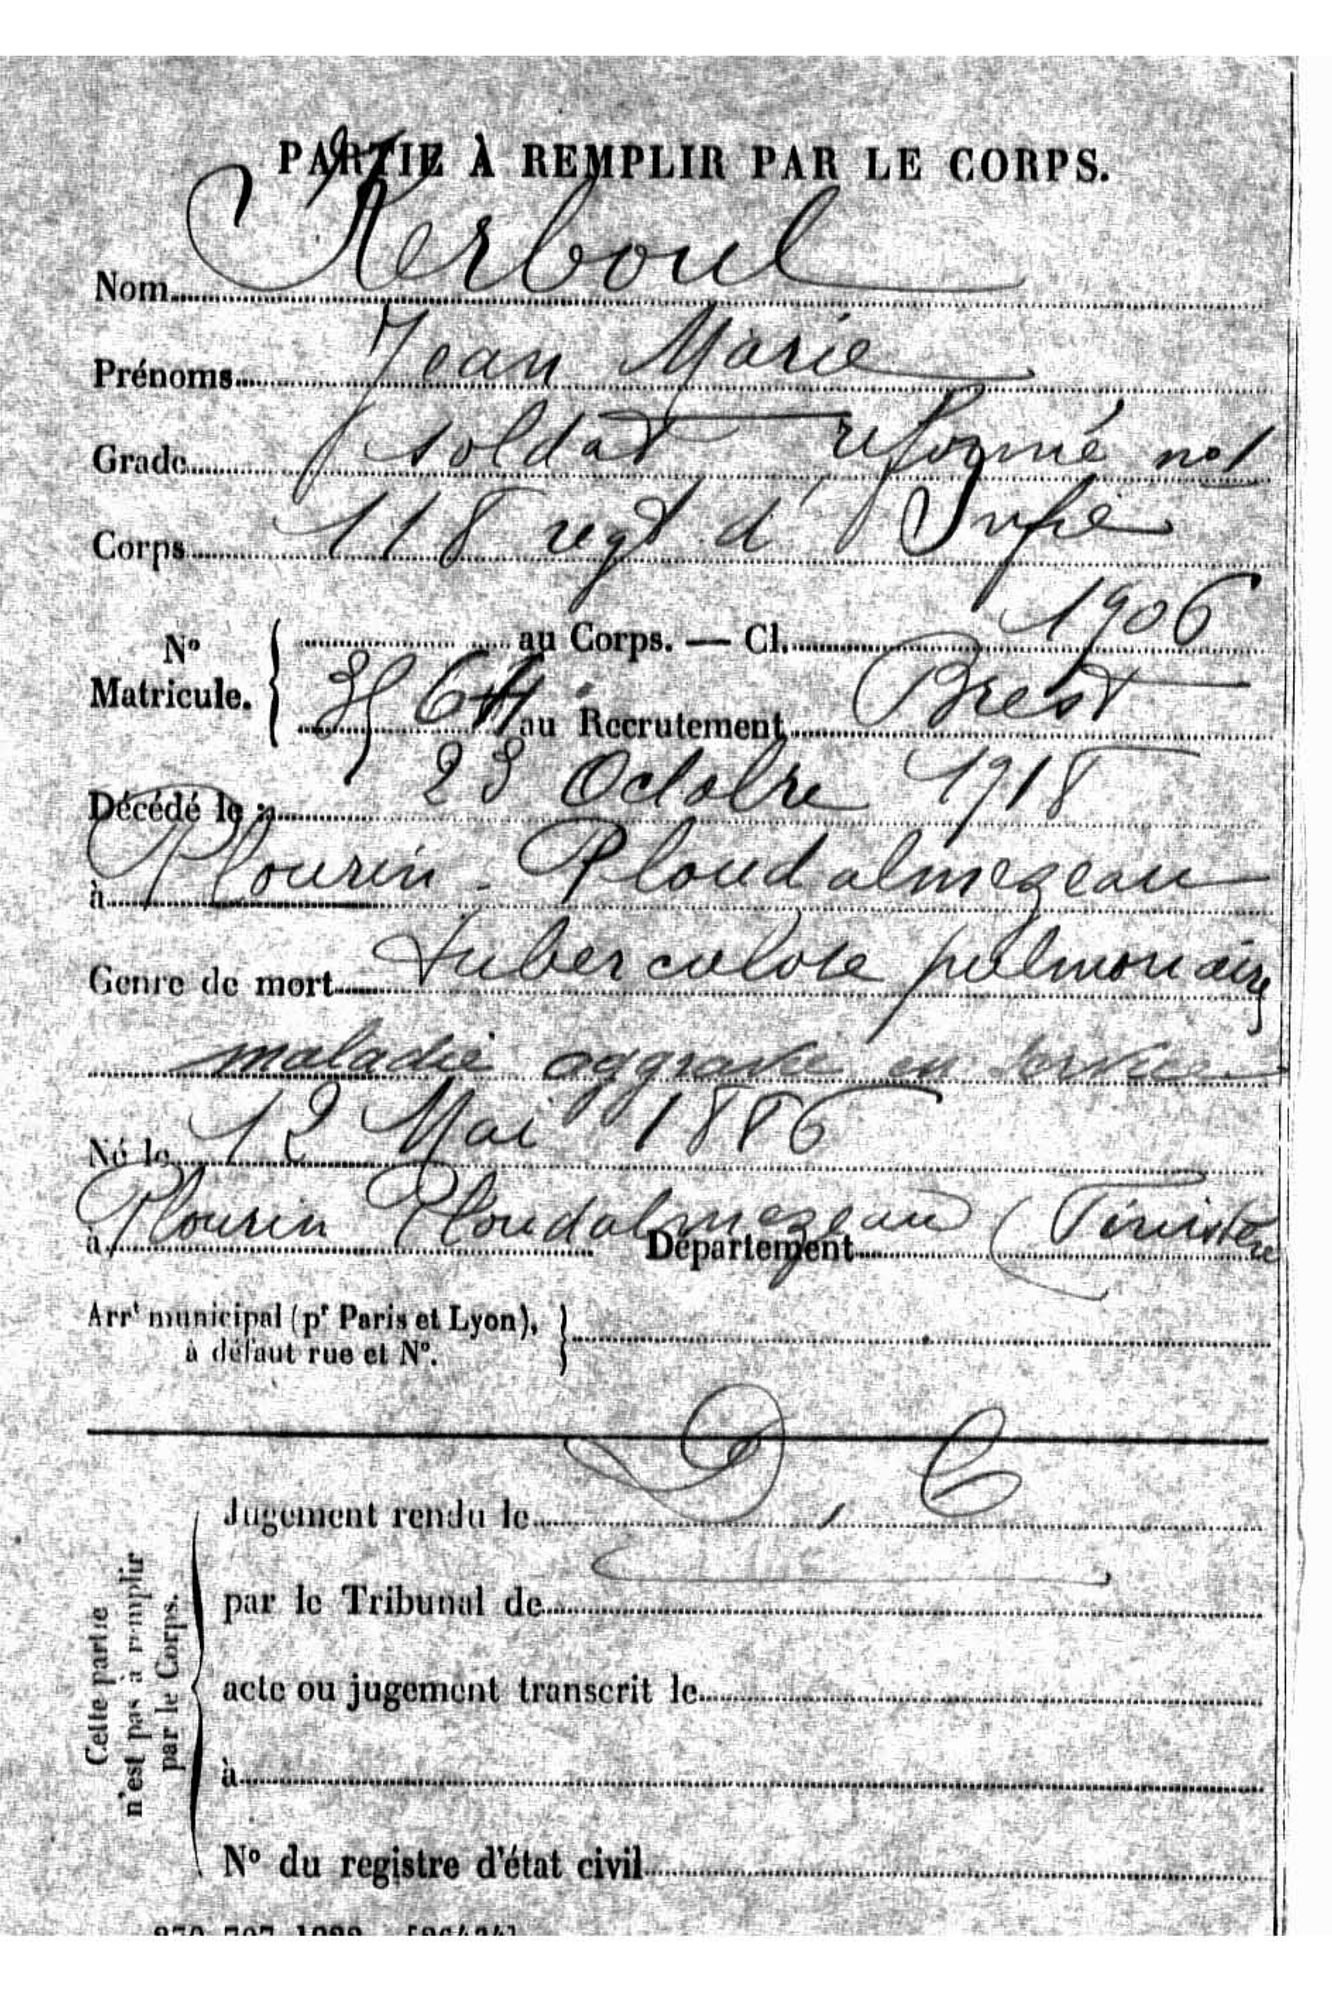 PARTIE À REMPLIR PAR LE CORPS.
Nom Kerboul
Prénoms Jean Marie
Grade soldat réformé no 1
Corps 118 regt d'Infie
No Matricule. au Corps. — Cl. 1906
au Recrutement Brest
Décédé le 23 Octobre 1918
à Plourin-Ploudalmezeau
Genre de mort tuberculose pulmonaire
maladie aggravée en service
Né le 12 Mai 1886
à Plourin Ploudalmezeau Département (Finistère
Arrt municipal (pr Paris et Lyon),
à défaut rue et No.
D, C
Cette partie
n'est pas à remplir
par le Corps.
Jugement rendu le
par le Tribunal de
acte ou jugement transcrit le
à
No du registre d'état civil